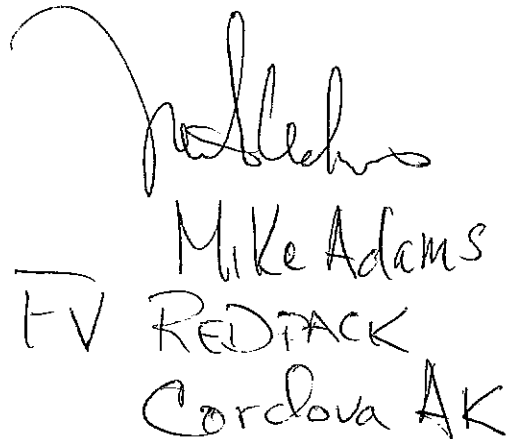 Mike Adams
FV REDPACK
Cordova AK